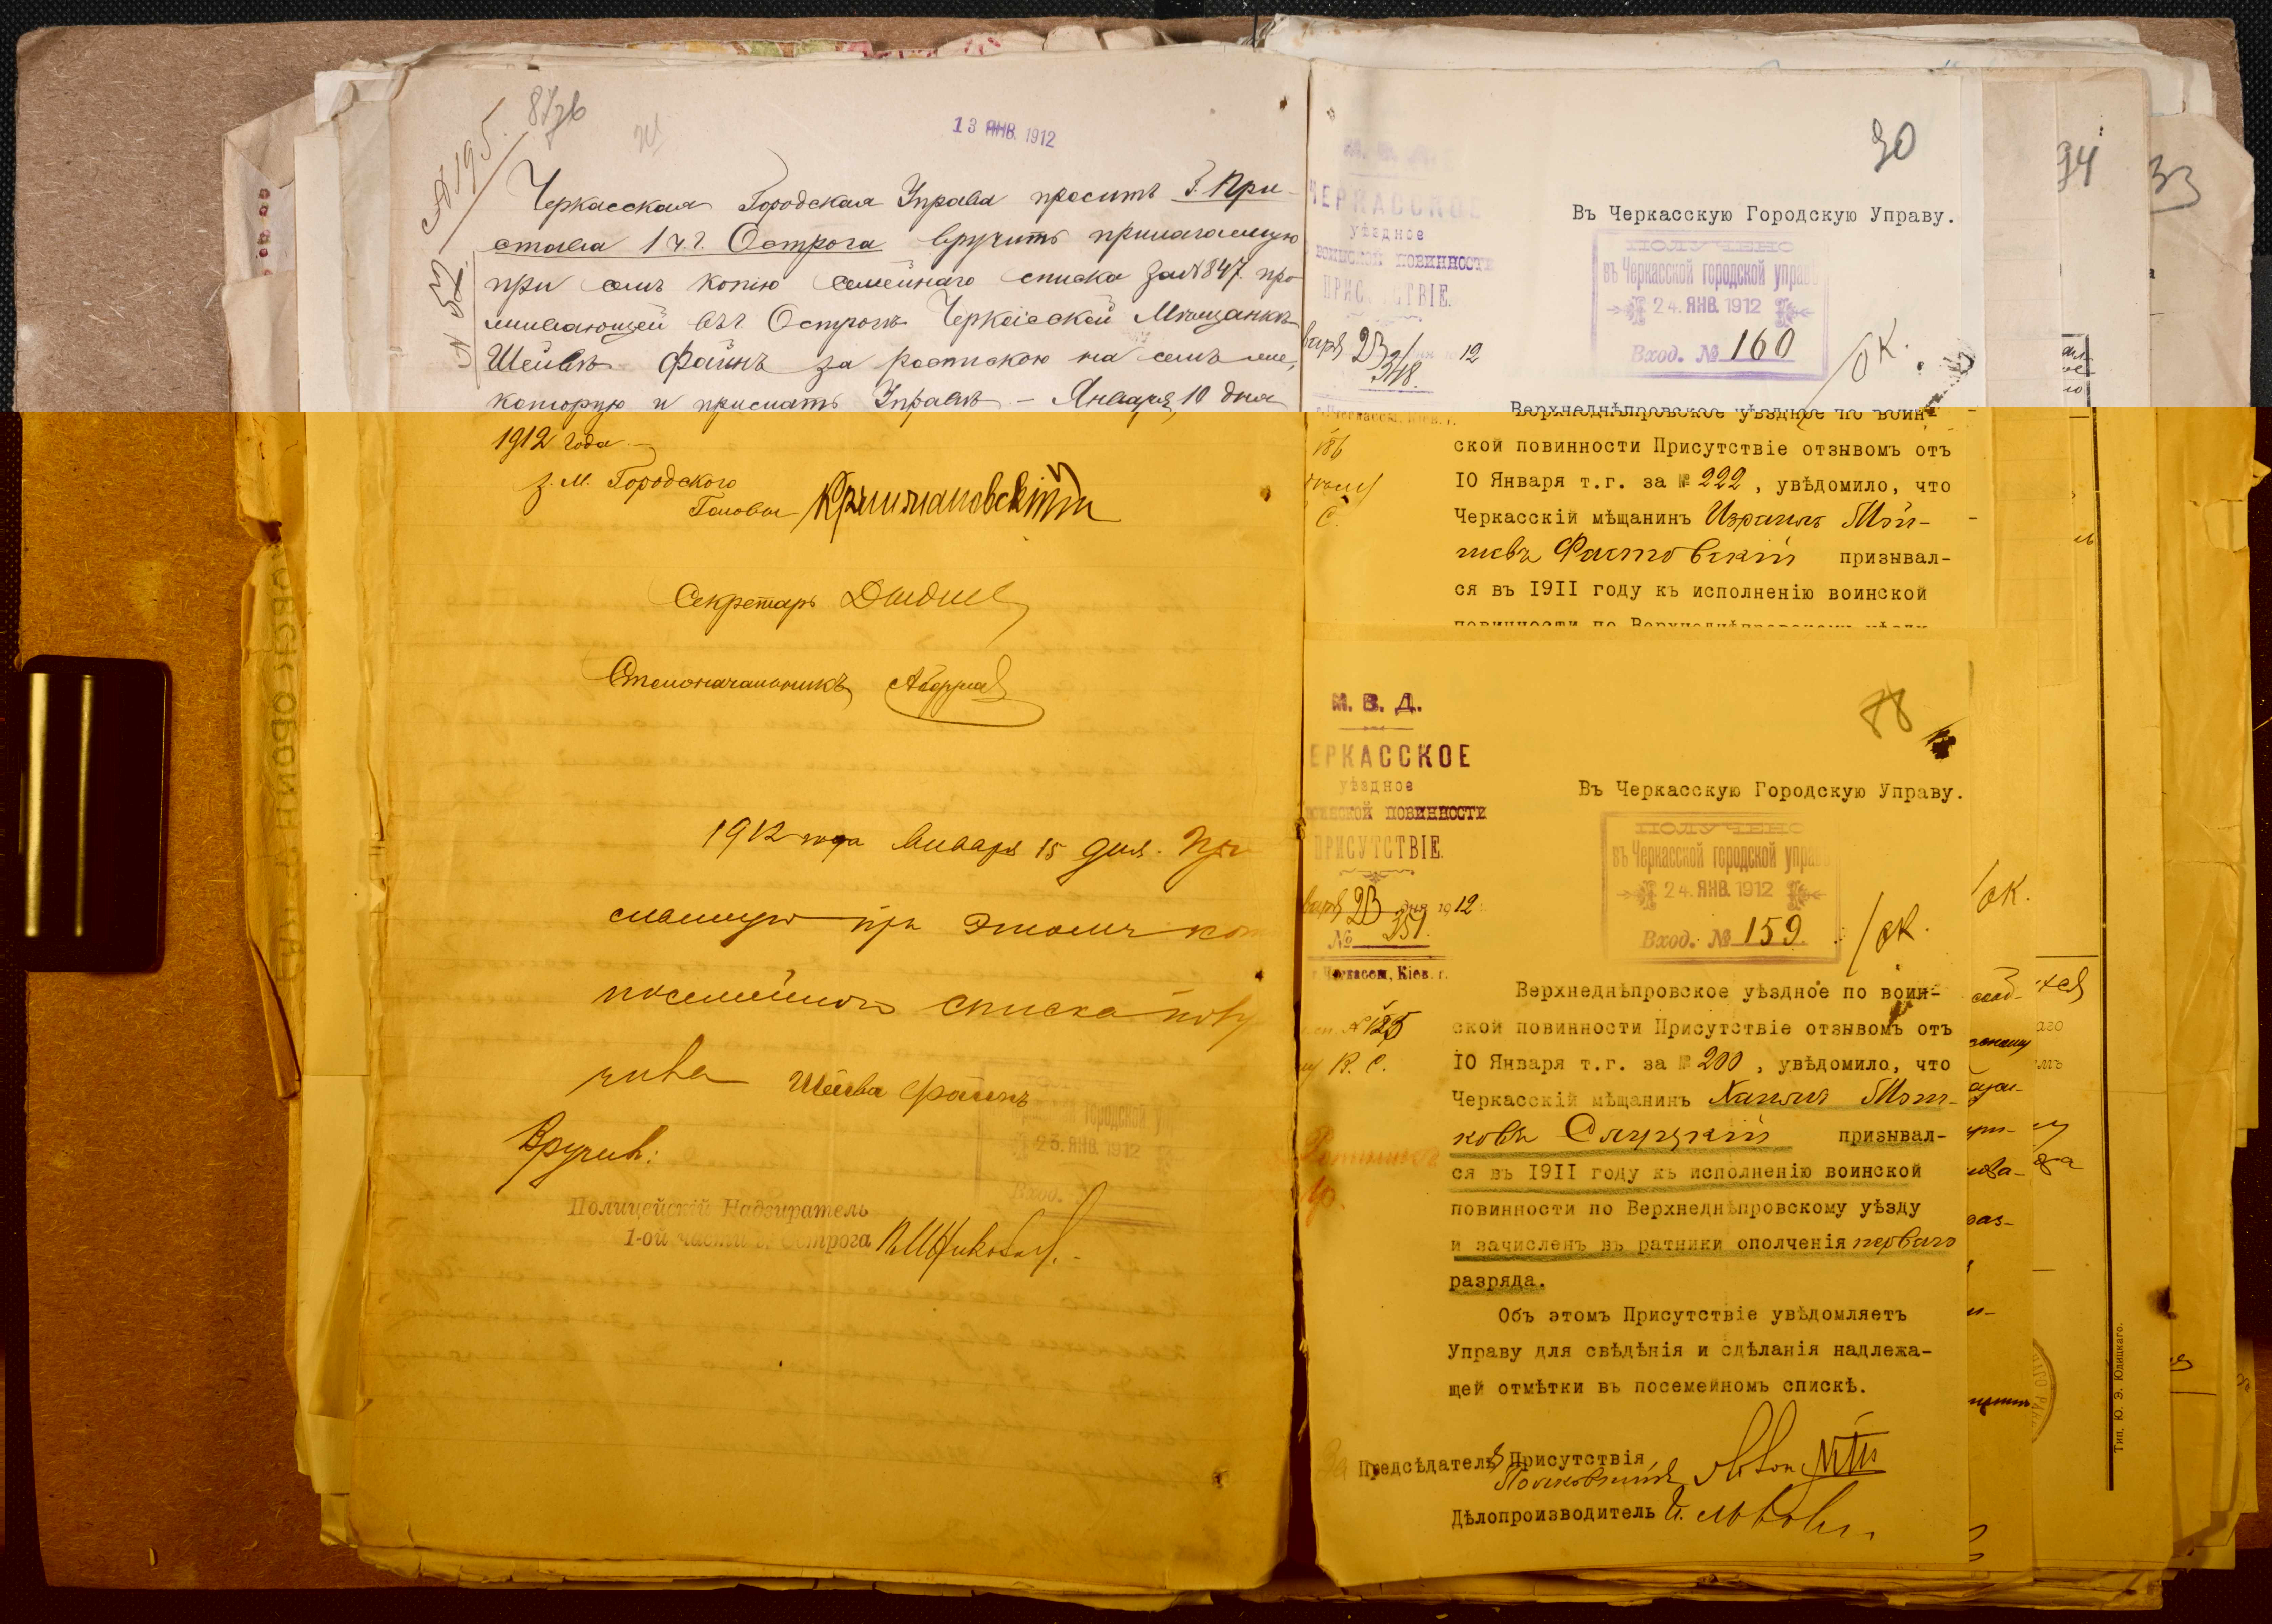 87зв
13 ЯНВ. 1912
№ 195
№ 52
Черкасская Городская Управа проситъ Г. При-
става 1 ч. г. Острога вручить прилагаемую
при семъ копію семейнаго списка за № 847. про-
живающей въ г. Острогѣ Черкасской Мѣщанкѣ
Шейвѣ Файнъ за роспискою на семъ же,
которую и прислать Управѣ. – Января 10 дня
1912 года.
З. М. Городского
Головы
Секретарь
Столоначальникъ
1912 года Января 15 дня. При
сланную при этомъ коп
посемейнаго списка полу
чила Шейва Файнъ
городской упр
23. ЯНВ. 1912
Вход.
Вручилъ:
Полицейскій Надзиратель
1-ой части г. Острога
30
М. В. Д.
ЧЕРКАССКОЕ
уѣздное
воинской повинности
ПРИСУТСТВІЕ.
варя 23 дня 1912
348.
г. Черкассы, Кіев. г.
186
С.
Въ Черкасскую Городскую Управу.
ПОЛУЧЕНО
въ Черкасской городской управ
24. ЯНВ. 1912
Вход. № 160
/ОК.
Верхнеднѣпровское уѣздное по воин-
ской повинности Присутствіе отзывомъ отъ
IO Января т.г. за № 222, увѣдомило, что
Черкасскій мѣщанинъ Израиль Мой-
шевъ Фастовскій призывал-
ся въ I9II году къ исполненію воинской
повинности по Верхнеднѣпровскому уѣзду
78
М. В. Д.
ЕРКАССКОЕ
уѣздное
воинской повинности
ПРИСУТСТВІЕ.
варя 23 дня 1912
№ 351.
г. Черкассы, Кіев. г.
№ 185
В. С.
Въ Черкасскую Городскую Управу.
ПОЛУЧЕНО
въ Черкасской городской упра
24. ЯНВ. 1912
Вход. № 159.
/ОК.
Верхнеднѣпровское уѣздное по воин-
ской повинности Присутствіе отзывомъ отъ
IO Января т.г. за № 200, увѣдомило, что
Черкасскій мѣщанинъ Хаимъ Мош-
ковъ Слуцкій призывал-
ся въ I9II году къ исполненію воинской
повинности по Верхнеднѣпровскому уѣзду
и зачисленъ въ ратники ополченія перваго
разряда.
Объ этомъ Присутствіе увѣдомляетъ
Управу для свѣдѣнія и сдѣланія надлежа-
щей отмѣтки въ посемейномъ спискѣ.
За Предсѣдателя Присутствія
Полковникъ
Дѣлопроизводитель
94
33
/ОК.
Тип. Ю. Э. Юдицкаго.